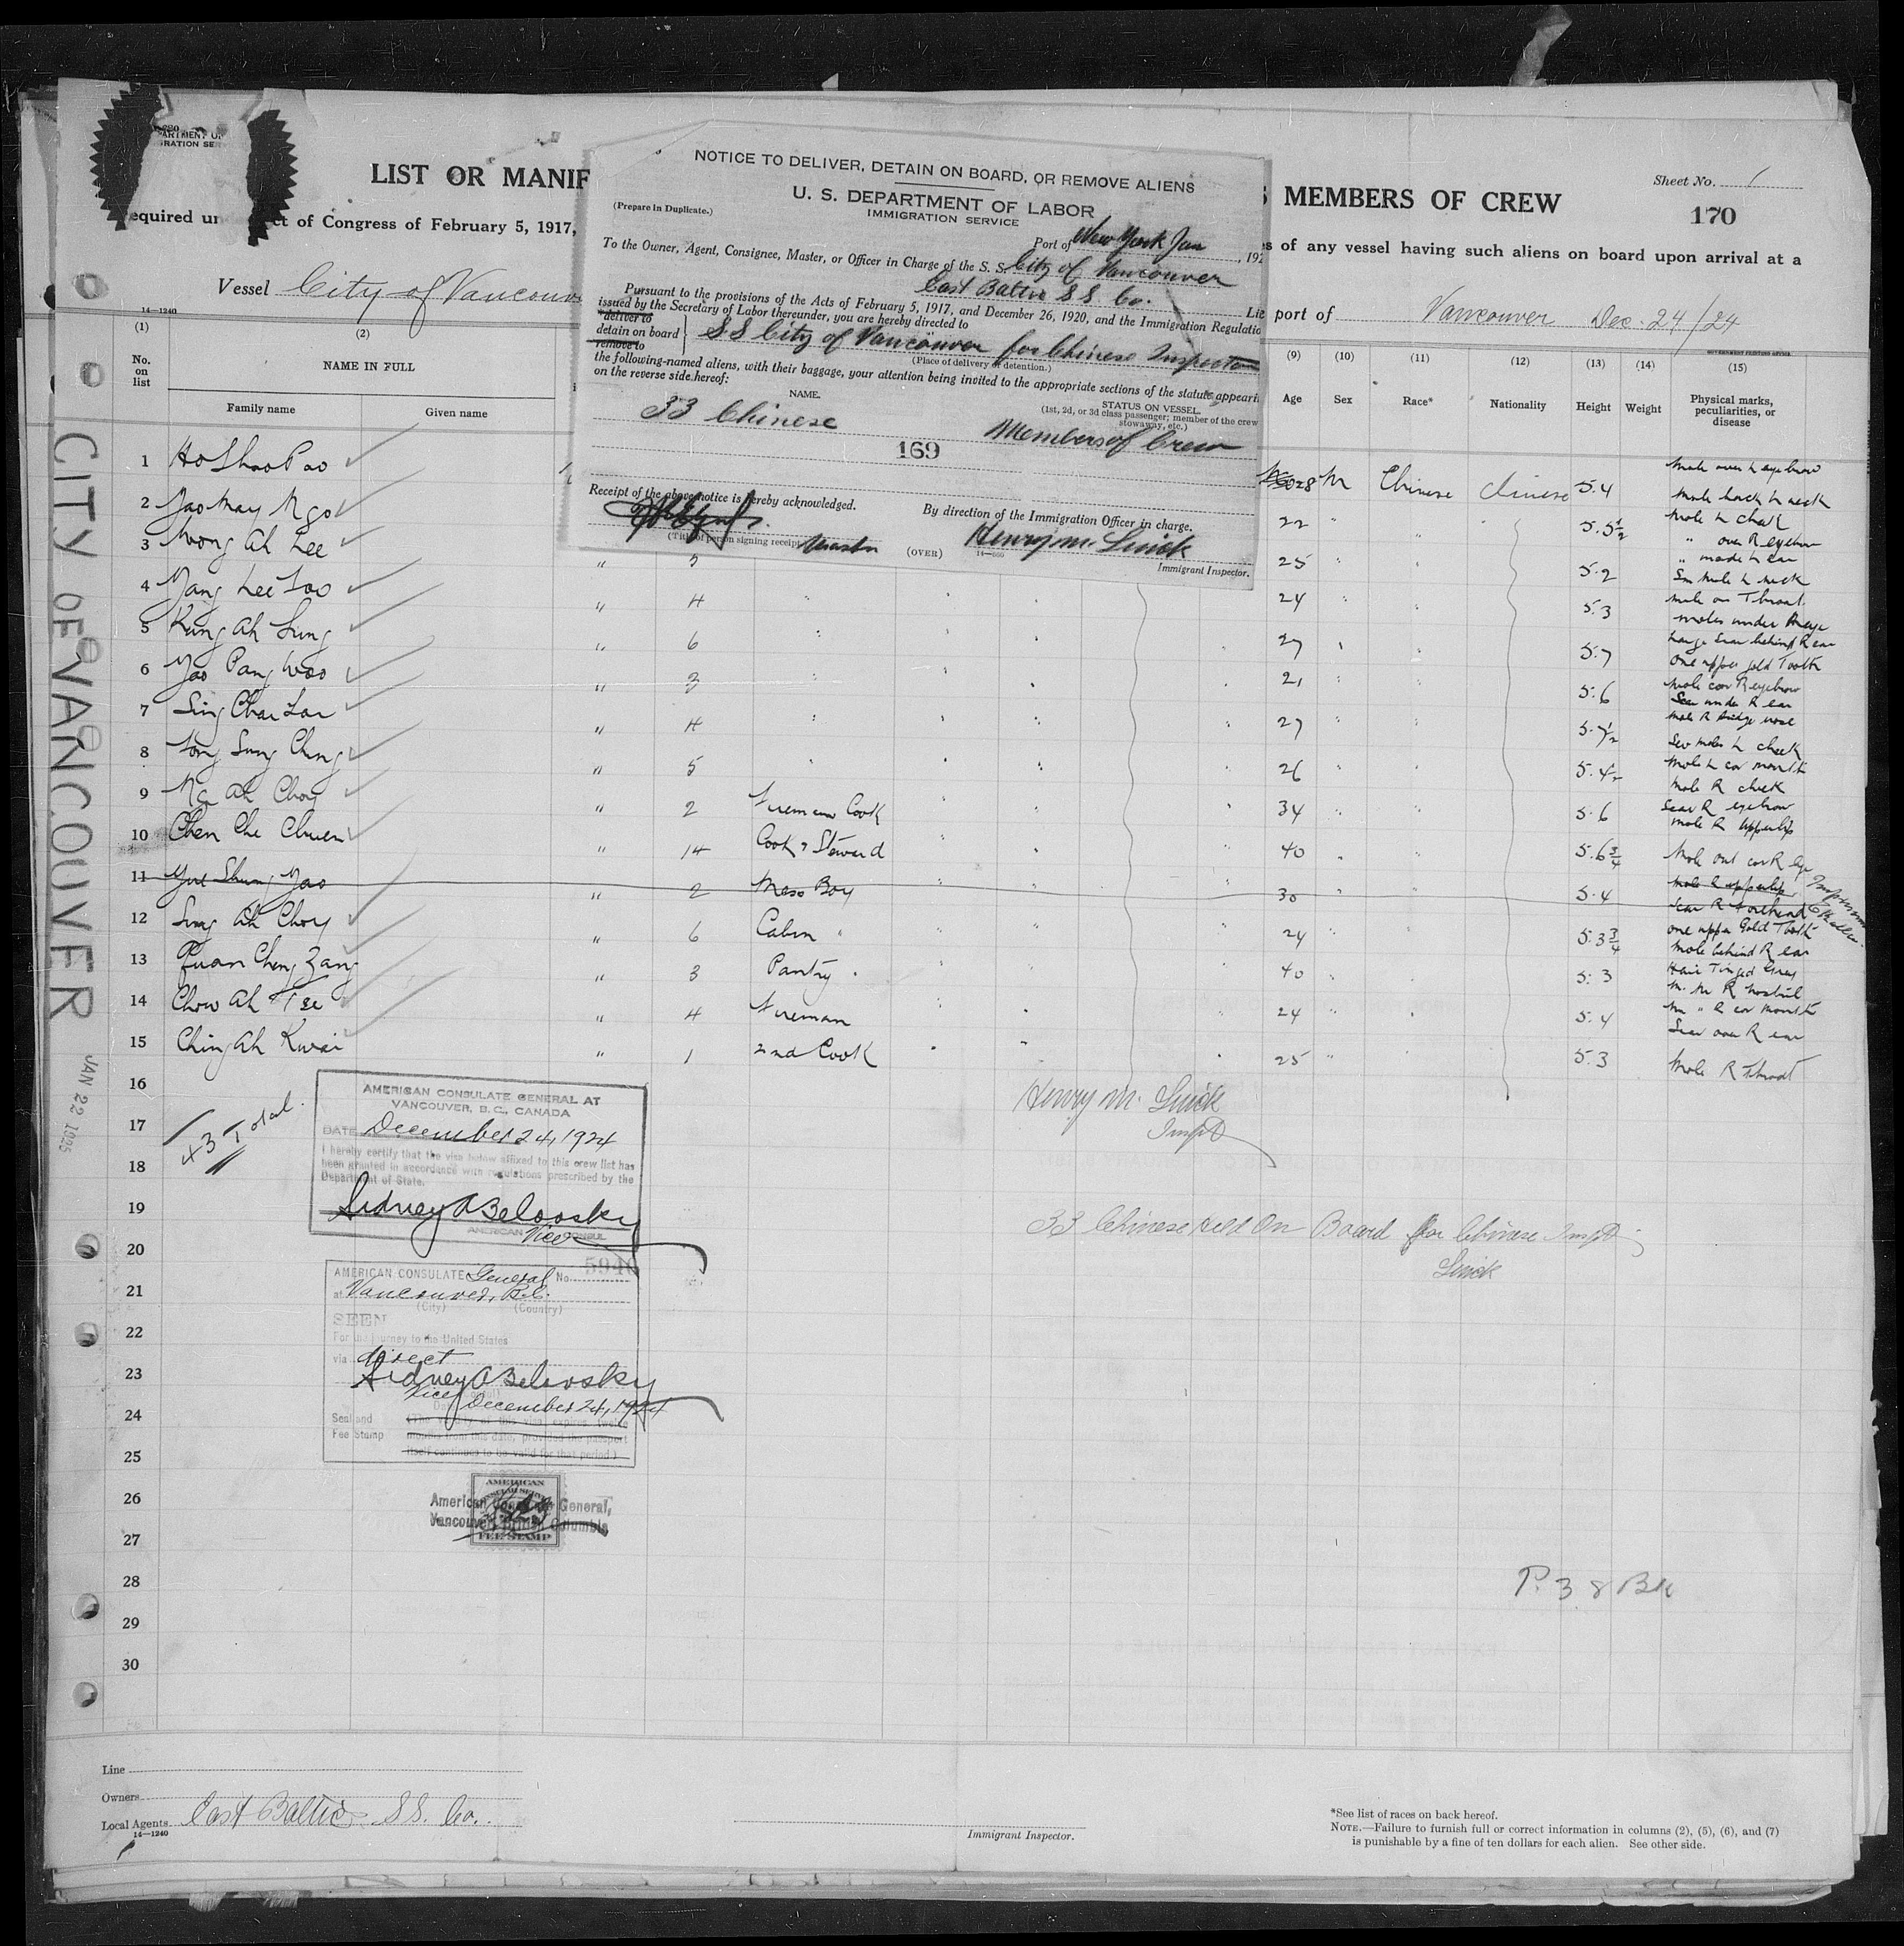 LIST OR MANIF
S MEMBERS OF CREW
Sheet No. 1
170
equired un ct of Congress of February 5, 1917,
s of any vessel having such aliens on board upon arrival at a
Vessel City of Vancouv
port of Vancouver Dec. 24/24
14—1240
NOTICE TO DELIVER, DETAIN ON BOARD, OR REMOVE ALIENS
U. S. DEPARTMENT OF LABOR
IMMIGRATION SERVICE
(Prepare in Duplicate.)
Port of New York Jan , 192
To the Owner, Agent, Consignee, Master, or Officer in Charge of the S. S. City of Vancouver
East Baltic S S Co.
Pursuant to the provisions of the Acts of February 5, 1917, and December 26, 1920, and the Immigration Regulatio
issued by the Secretary of Labor thereunder, you are hereby directed to
deliver to
detain on board
remove to
S S City of Vancouver for Chinese Inspection
(Place of delivery or detention.)
the following-named aliens, with their baggage, your attention being invited to the appropriate sections of the statute appeari
on the reverse side hereof:
NAME.
STATUS ON VESSEL.
(1st, 2d, or 3d class passenger; member of the crew
stowaway, etc.)
33 Chinese
Members of Crew
169
Receipt of the above notice is hereby acknowledged.
By direction of the Immigration Officer in charge.
(Title of person signing receipt) Master
(OVER)
14—660
Henry M. Linick
Immigrant Inspector.
(1) (2) (9) (10) (11) (12) (13) (14) (15)
No. on list
NAME IN FULL
Family name Given name
Age Sex Race* Nationality Height Weight Physical marks, peculiarities, or disease
1 Ho Shao Pao 28 M Chinese Chinese 5.4 Mole over L eyebrow
Mole back L neck
2 Yao May Ngo 22 " 5.5½ Mole L cheek
" over R eyebrow
3 Wong Ah Lee " 5 25 " 5.2
Sm mole L neck
4 Yang Lee Soo " 4 24 " 5.3 Mole on Throat
moles under R eye
5 Kung Ah Sung " 6 27 " 5.7 Large Scar behind R ear
One upper gold Tooth
6 Yao Pang Woo " 3 21 " 5.6 Mole cor R eyebrow
Scar under R ear
7 Sing Chai Lan " 4 27 " Mole R bridge nose
Sev moles L cheek
8 Tong Sung Ching " 5 26 " Mole L cor mouth
Mole R cheek
9 Ng Ah Choy " 2 Fireman Cook 34 " 5.6 Scar R eyebrow
Mole R Upperlip
10 Chen Che Chuen " 14 Cook & Steward 40 " 5.6¾ Mole out cor R eye
11 Yue Shung Yao " 2 Mess Boy 30 " 5.4 Mole L upperlip
Scar R forehead
12 Sung Ah Choy " 6 Cabin " 24 " 5.3¾ one upper Gold Tooth
Mole behind R ear
13 Quan Cheng Zang " 3 Pantry " 40 " 5.3 Hair Tinged Gray
M. R nostril
14 Chow Ah Tse " 4 Fireman 24 " 5.4 M " R cor mouth
Scar over R ear
15 Ching Ah Kwai " 1 2nd Cook 25 " 5.3 Mole R Throat
16
17
18
19
20
21
22
23
24
25
26
27
28
29
30
CITY OF VANCOUVER JAN 22 1925
43 Total.
AMERICAN CONSULATE GENERAL AT
VANCOUVER, B.C., CANADA
DATE December 24, 1924
I hereby certify that the visa below affixed to this crew list has
been granted in accordance with regulations prescribed by the
Department of State.
Sidney A Belovsky
AMERICAN Vice CONSUL
Henry M. Linick
Inspt
33 Chinese Held On Board for Chinese Inspt
Linick
AMERICAN CONSULATE General No. 5940
at Vancouver, B.C.
(City) (Country)
SEEN
For the journey to the United States
via direct
Sidney A Belovsky
Vice
December 24, 1924
(The validity of this visa expires twelve
months from this date, provided the passport
itself continues to be valid for that period.)
Seal and
Fee Stamp
AMERICAN
CONSULAR SERVICE
FEE STAMP
American Consulate General,
Vancouver, British Columbia
P. 38 Bk
Line
Owners
Local Agents East Baltic S S. Co.
14—1240
Immigrant Inspector.
*See list of races on back hereof.
NOTE.—Failure to furnish full or correct information in columns (2), (5), (6), and (7)
is punishable by a fine of ten dollars for each alien. See other side.